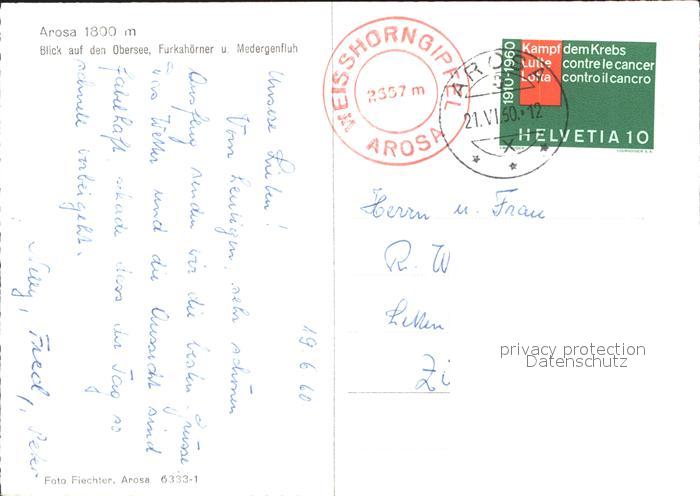 Arosa 1800 m
Blick auf den Obersee, Furkahörner u. Medergenfluh
19.6.60
Unsere Lieben!
Vom heutigen, sehr schönen
Ausflug senden wir die besten Grüsse.
Das Wetter und die Aussicht sind
fabelhaft, schade dass der Tag so
schnell vorbeigeht.
Nelly, Fredy, Peter
Foto Fiechter, Arosa 6333-1
WEISSHORNGIPFEL
2657 m
AROSA
AROSA
21.VI.60.-12
X
1910-1960
Kampf dem Krebs
Lutte contre le cancer
Lotta contro il cancro
HELVETIA 10
Herrn u. Frau
R. W
Zi
privacy protection
Datenschutz